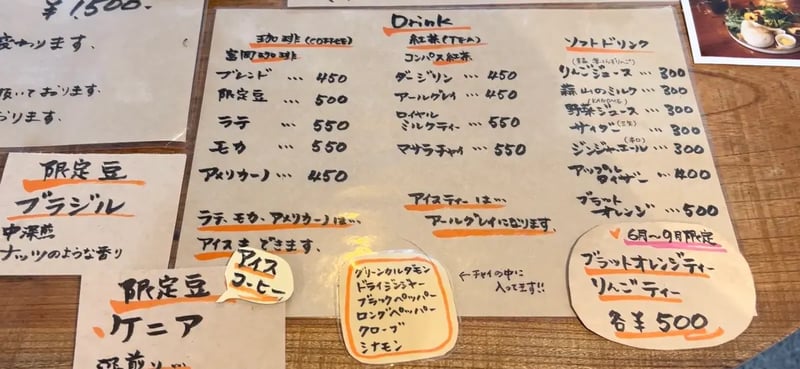 ¥1,500.
変わります、
頂いております。
おります。
Drink
珈琲(COFFEE)
富岡珈琲
ブレンド … 450
限定豆 … 500
ラテ … 550
モカ … 550
アメリカーノ … 450
ラテ、モカ、アメリカーノは…
アイスもできます。
紅茶(TEA)
コンパス紅茶
ダージリン … 450
アールグレイ … 450
ロイヤル
ミルクティー … 550
マサラチャイ … 550
アイスティーは…
アールグレイになります。
ソフトドリンク
りんごジュース … 300
蒜山のミルク … 300
(KAGOME)
野菜ジュース … 300
サイダー … 300
(辛口)
ジンジャーエール … 300
アップル
タイザー … 400
ブラッド
オレンジ … 500
6月〜9月限定
ブラッドオレンジティー
りんごティー
各¥500
グリーンカルダモン
ドライジンジャー
ブラックペッパー
ロングペッパー
クローブ
シナモン
←チャイの中に
入ってます!!
限定豆
ブラジル
中深煎
ナッツのような香り
アイス
コーヒー
限定豆
ケニア
深煎り…